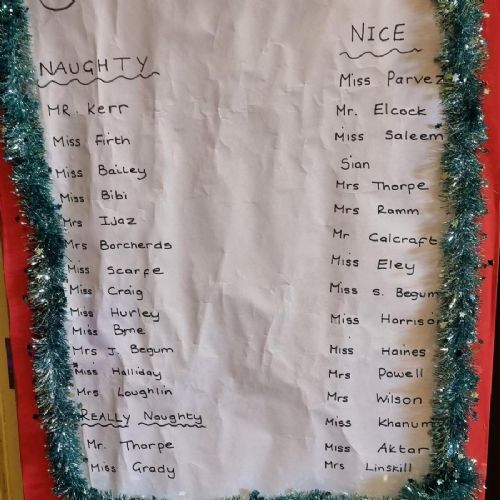 NAUGHTY
MR. Kerr
Miss Firth
Miss Bailey
Miss Bibi
Mrs Ijaz
Mrs Borcherds
Miss Scarfe
Miss Craig
Miss Hurley
Miss Byrne
Mrs J. Begum
Miss Halliday
Mrs. Loughlin
REALLY Naughty
Mr. Thorpe
Miss Grady
NICE
Miss Parvez
Mr. Elcock
Miss Saleem
Sian
Mrs Thorpe
Mrs Ramm
Mr Calcraft
Miss Eley
Miss S. Begum
Miss Harrison
Miss Haines
Mrs Powell
Mrs Wilson
Miss Khanum
Miss Aktar
Mrs Linskill